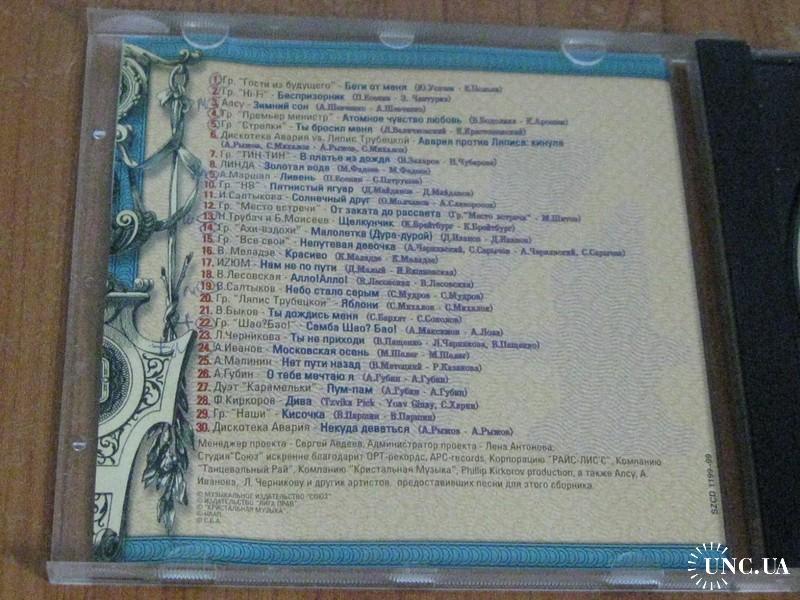 1. Гр. "Гости из будущего" - Беги от меня (Ю.Усачев - Е.Польна)
2. Гр. "Hi-Fi" - Беспризорник (П.Есенин - Э. Чантурия)
3. Алсу - Зимний сон (А.Шевченко - А.Шевченко)
4. Гр. "Премьер министр" - Атомное чувство любовь (В.Бодолика - К.Арсенев)
5. Гр. "Стрелки" - Ты бросил меня
6. Дискотека Авария vs. Ляпис Трубецкой - Авария против Ляписа: кинула
(А.Рыжов, С.Михалок - А.Рыжов, С.Михалок)
7. Гр. "ТИН-ТИН" - В платье из дождя (В.Захаров - Н.Чубарова)
8. ЛИНДА - Золотая вода (М.Фадеев - М.Фадеев)
9. А.Маршал - Ливень (П.Есенин - С.Патрушев)
10. Гр. "НВ" - Пятнистый ягуар (Д.Майданов - Д.Майданов)
11. И.Салтыкова - Солнечный друг (О.Молчанов - А.Славоросов)
12. Гр. "Место встречи" - От заката до рассвета (Гр."Место встречи" - М.Шитов)
13. Н.Трубач и Б.Моисеев - Щелкунчик (К.Брейтбург - К.Брейтбург)
14. Гр. "Ахи-вздохи" - Малолетка (Дура-дурой) (Д.Иванов - Д.Иванов)
15. Гр. "Все свои" - Непутевая девочка (А.Чернявский, С.Сарычев - А.Чернявский, С.Сарычев)
16. В. Меладзе - Красиво (К.Меладзе - К.Меладзе)
17. ИZЮМ - Нам не по пути (Д.Малый -
18. В.Лесовская - Алло!Алло! (В.Лесовская - В.Лесовская)
19. В.Салтыков - Небо стало серым (С.Мудров - С.Мудров)
20. Гр. "Ляпис Трубецкой" - Яблони (С.Михалок - С.Михалок)
21. В.Быков - Ты дождись меня (С.Бархат - С.Соколов)
22. Гр. "Шао?Бао!" - Самба Шао? Бао! (А.Максимов - А.Лоза)
23. Л.Черникова - Ты не приходи (В.Пащенко - Л.Черникова, В.Пащенко)
24. А.Иванов - Московская осень (М.Шелег - М.Шелег)
25. А.Малинин - Нет пути назад (В.Матецкий - Р.Казакова)
26. А.Губин - О тебе мечтаю я (А.Губин - А.Губин)
27. Дуэт "Карамельки" - Пум-пам (А.Губин - А.Губин)
28. Ф.Киркоров - Дива (Tzvika Pick - Yoav Ginay, С.Харин)
29. Гр. "Наши" - Кисочка (В.Паршин - В.Паршин)
30. Дискотека Авария - Некуда деваться (А.Рыжов - А.Рыжов)
Менеджер проекта - Сергей Авдеев, Администратор проекта - Лена Антонова.
Студия"Союз" искренне благодарит ОРТ-рекордс, АРС-records, Корпорацию "РАЙС-ЛИС'С", Компанию
"Танцевальный Рай", Компанию "Кристальная Музыка", Phillip Kirkorov production, а также Алсу, А.
Иванова, Л. Черникову и других артистов, предоставивших песни для этого сборника.
© МУЗЫКАЛЬНОЕ ИЗДАТЕЛЬСТВО "СОЮЗ"
© ИЗДАТЕЛЬСТВО "ЛИГА ПРАВ"
© "КРИСТАЛЬНАЯ МУЗЫКА"
© С.Б.А.
SZCD 1199-99
UNC.UA